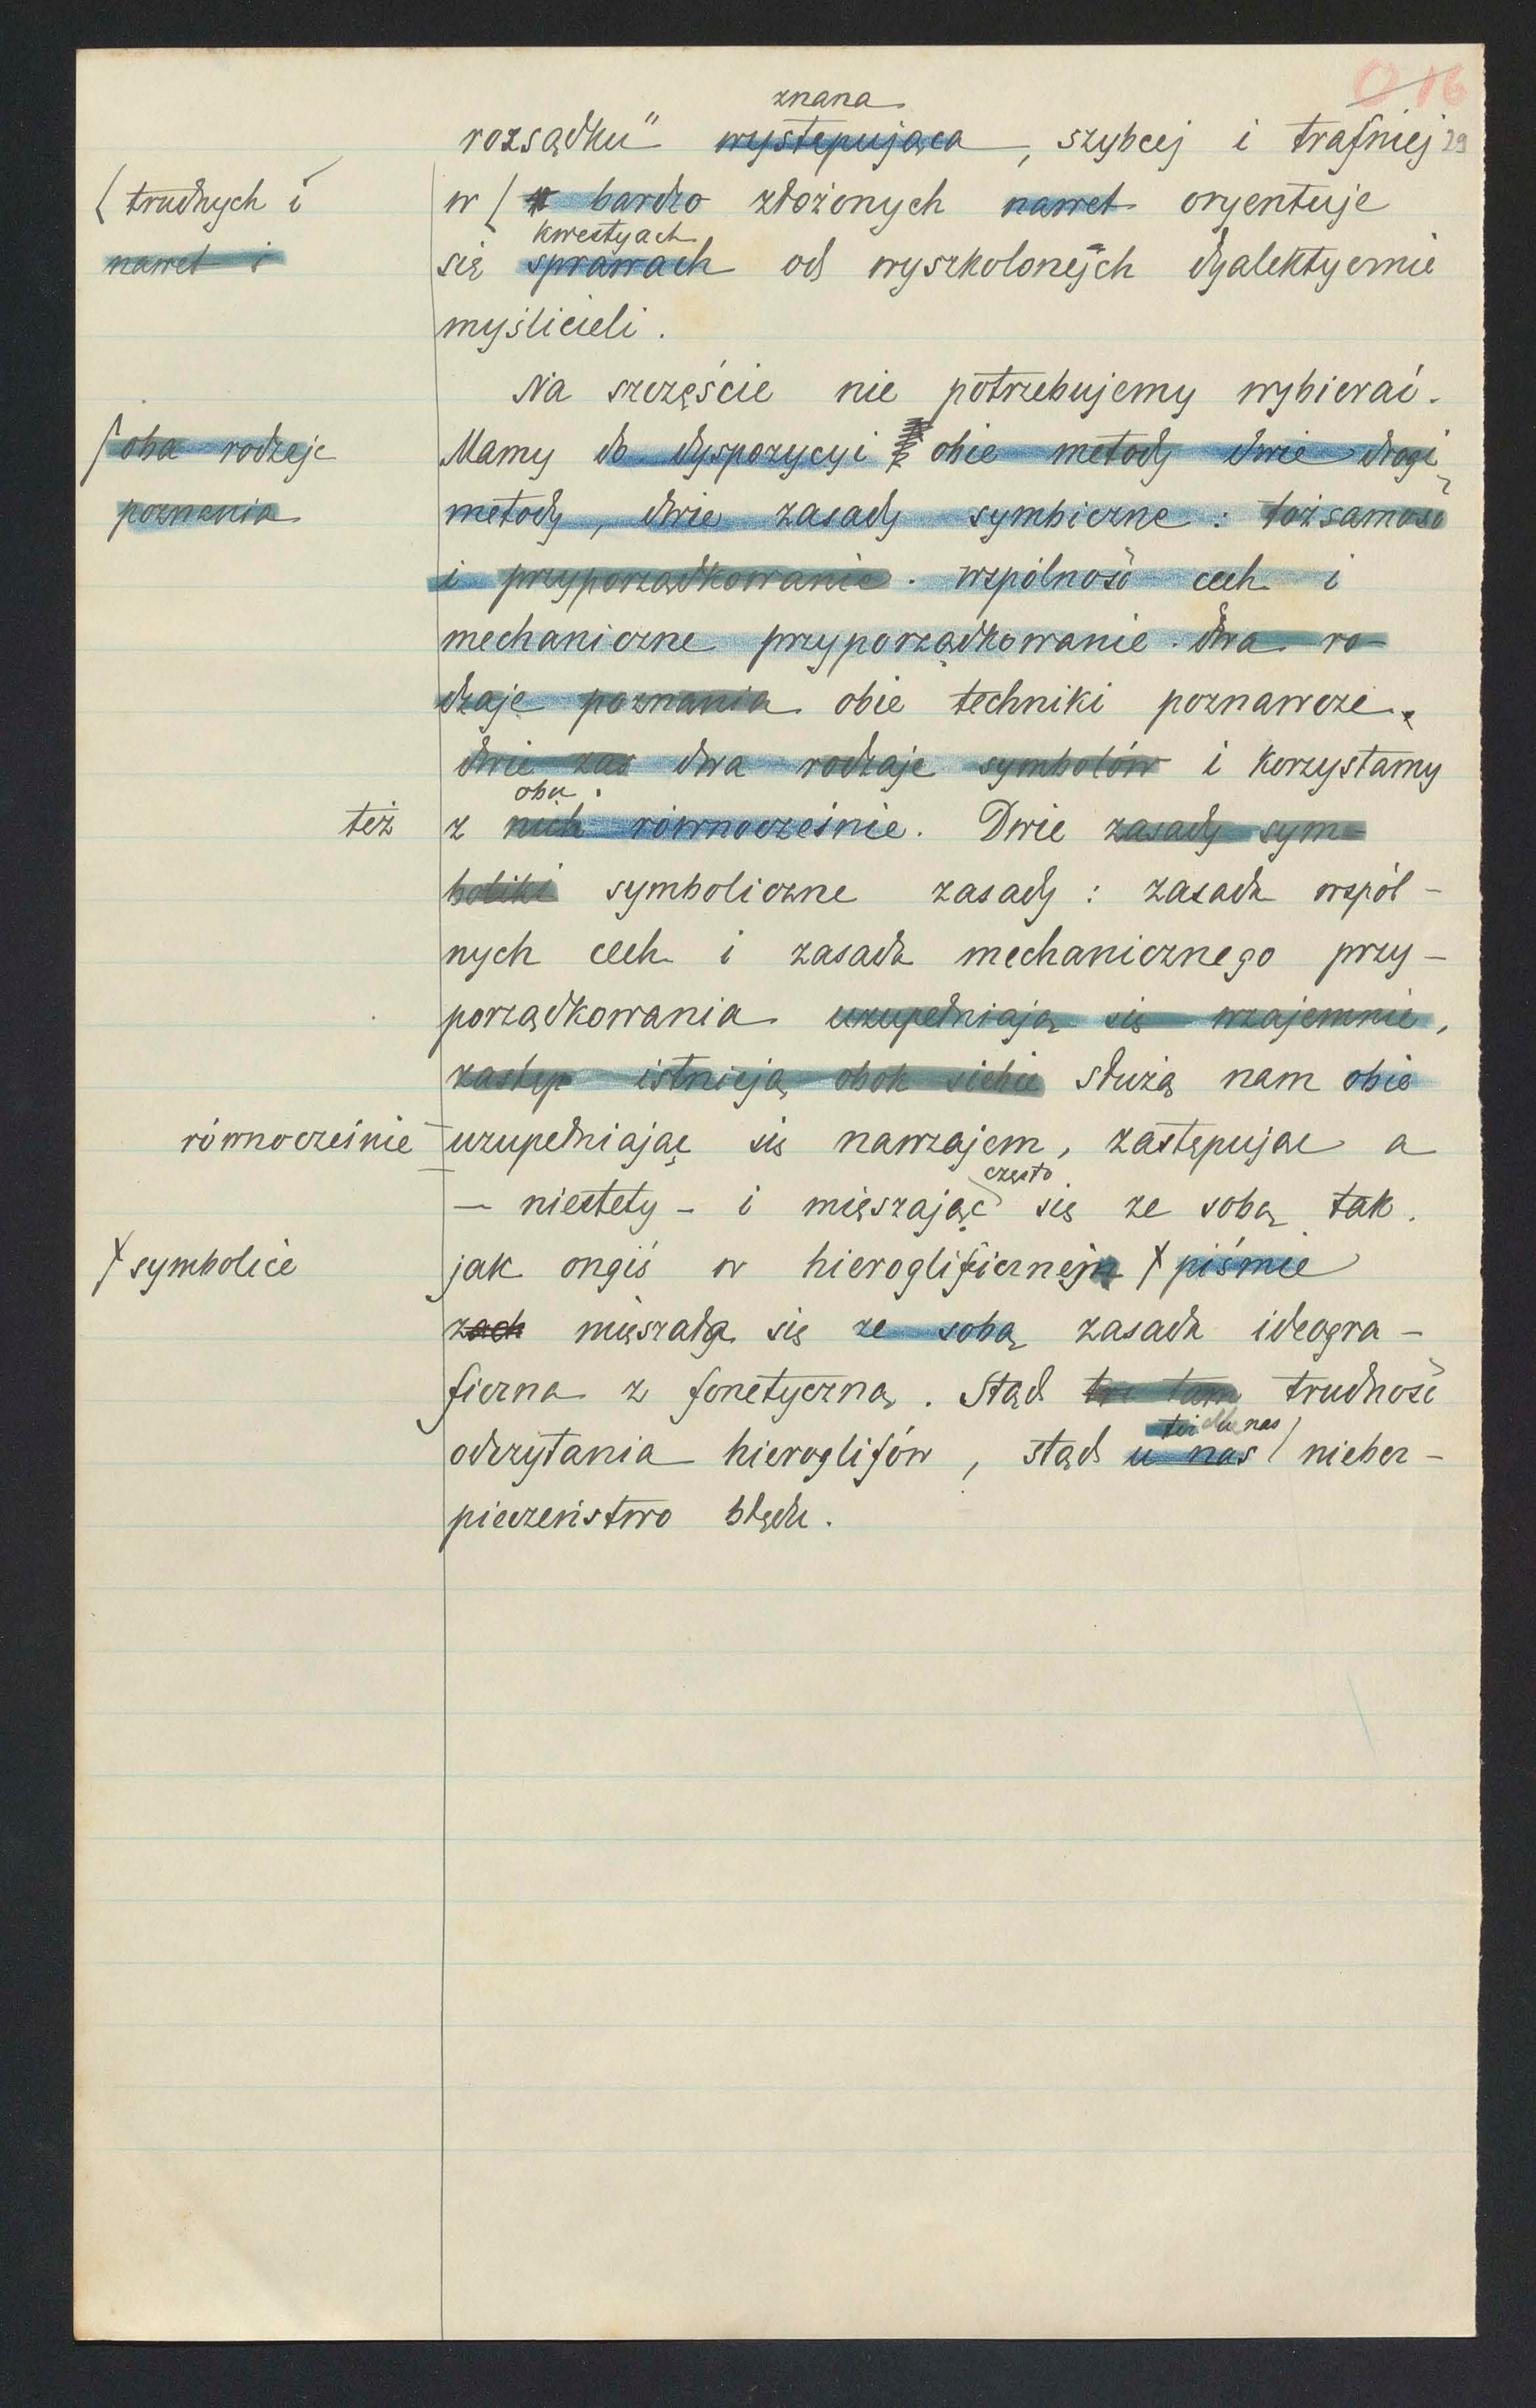 016
znana
rozsądku" występująca, szybciej i trafniej 29
( trudnych i
w ( bardzo złożonych nawet oryentuje
nawet i
kwestyach
się sprawach od wyszkolonych dyalektycznie
myślicieli.
Na szczęście nie potrzebujemy wybierać.
oba rodzaje
Mamy do dyspozycyi obie metody dwie drogi,
poznania
metody, dwie zasady symbiczne: tożsamość
i przyporządkowanie. wspólność cech i
mechaniczne przyporządkowanie. dwa ro-
dzaje poznania obie techniki poznawcze.
dwie zas dwa rodzaje symbolów i korzystamy
obu.
też
z nich równocześnie. Dwie zasady sym-
boliki symboliczne zasady: zasada wspól-
nych cech i zasada mechanicznego przy-
porządkowania uzupełniają się wzajemnie,
zastęp istnieją obok siebie służą nam obie
równocześnie
uzupełniając się nawzajem, zastępując a
często
– niestety – i mięszając się ze sobą tak.
symbolice
jak ongiś w hieroglificznej piśmie
zach mięszała się ze sobą zasada ideogra-
ficzna z fonetyczną. Stąd tam trudność
też dla nas
odczytania hieroglifów, stąd u nas niebez-
pieczeństwo błędu.